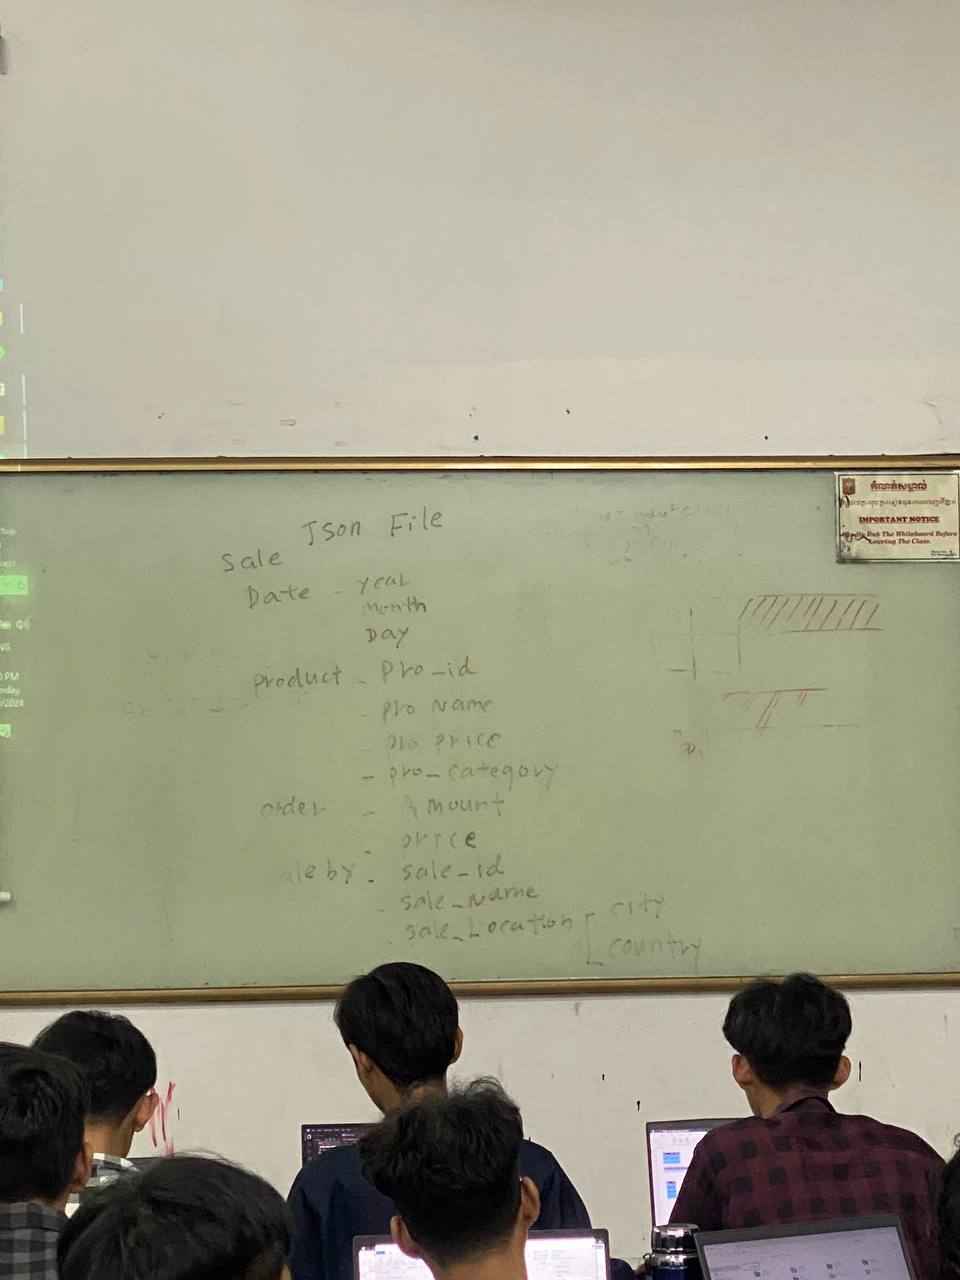 Json File
Sale
Date - year
Month
Day
product - pro-id
- pro Name
- pro price
- pro-category
order - Amount
- price
ale by - sale-id
- sale-Name
- sale-Location
city
country
IMPORTANT NOTICE
Rub The Whiteboard Before
Leaving The Class.